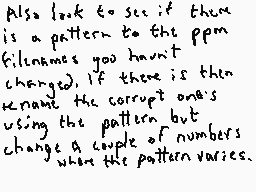 Also look to see if there
is a pattern to the ppm
filenames you havn't
changed, If there is then
rename the corrupt one's
using the pattern but
change a couple of numbers
where the pattern varies.